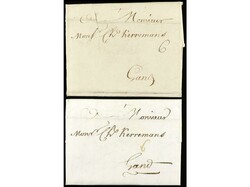 à Monsieur
Monsr. Kerremans
6
Gand
à Monsieur
Monsr. Kerremans
6
Gand